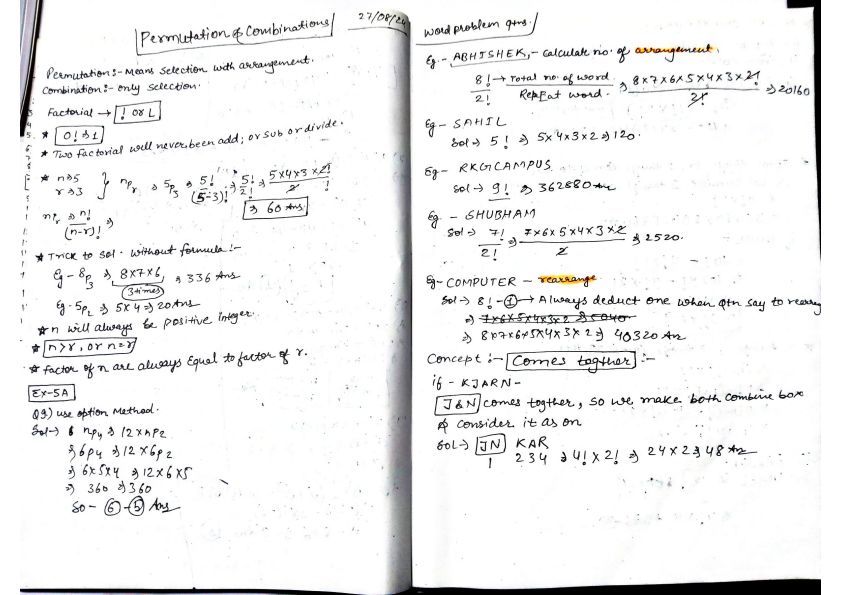 Permutation & Combinations
27/08/24
Permutation :- Means selection with arrangement.
Combination :- only selection.
Factorial → ! or L
* 0! ⇒ 1
* Two factorial will never been add; or sub or divide.
* n ⇒ 5
r ⇒ 3 } nPr ⇒ 5P3 ⇒ 5!/(5-3)! ⇒ 5!/2! ⇒ 5×4×3×2!/2!
⇒ 60 Ans
nPr ⇒ n!/(n-r)! ⇒
* Trick to sol. without formula :-
Eg - 8P3 ⇒ 8×7×6 ⇒ 336 Ans
3 times
Eg - 5P2 ⇒ 5×4 ⇒ 20 Ans
* n will always be positive integer.
* n>r, or n=r
* factor of n are always Equal to factor of r.
Ex-5A
Q3) use option Method.
Sol → nP4 ⇒ 12×nP2
⇒ 6P4 ⇒ 12×6P2
⇒ 6×5×4 ⇒ 12×6×5
⇒ 360 ⇒ 360
So - 6 - 5 Ans
Word problem qtns.
Eg - ABHISHEK, - Calculate no. of arrangement.
8!/2! → Total no. of word/Repeat word. ⇒ 8×7×6×5×4×3×2!/2! ⇒ 20160
Eg - SAHIL
Sol ⇒ 5! ⇒ 5×4×3×2 ⇒ 120.
Eg - RKGCAMPUS
Sol ⇒ 9! ⇒ 362880 Ans
Eg - SHUBHAM
Sol ⇒ 7!/2! ⇒ 7×6×5×4×3×2/2 ⇒ 2520.
Eg - COMPUTER - rearrange
Sol ⇒ 8! - 1 → Always deduct one when qtn say to rearrang
⇒ 7×6×5×4×3×2 ⇒ 5040
⇒ 8×7×6×5×4×3×2 ⇒ 40320 An
Concept :- Comes togther :-
if - KJARN -
J&N comes togther, so we make both combine box
& consider it as on
Sol ⇒ JN KAR
1 2 3 4 ⇒ 4! × 2! ⇒ 24×2 ⇒ 48 An